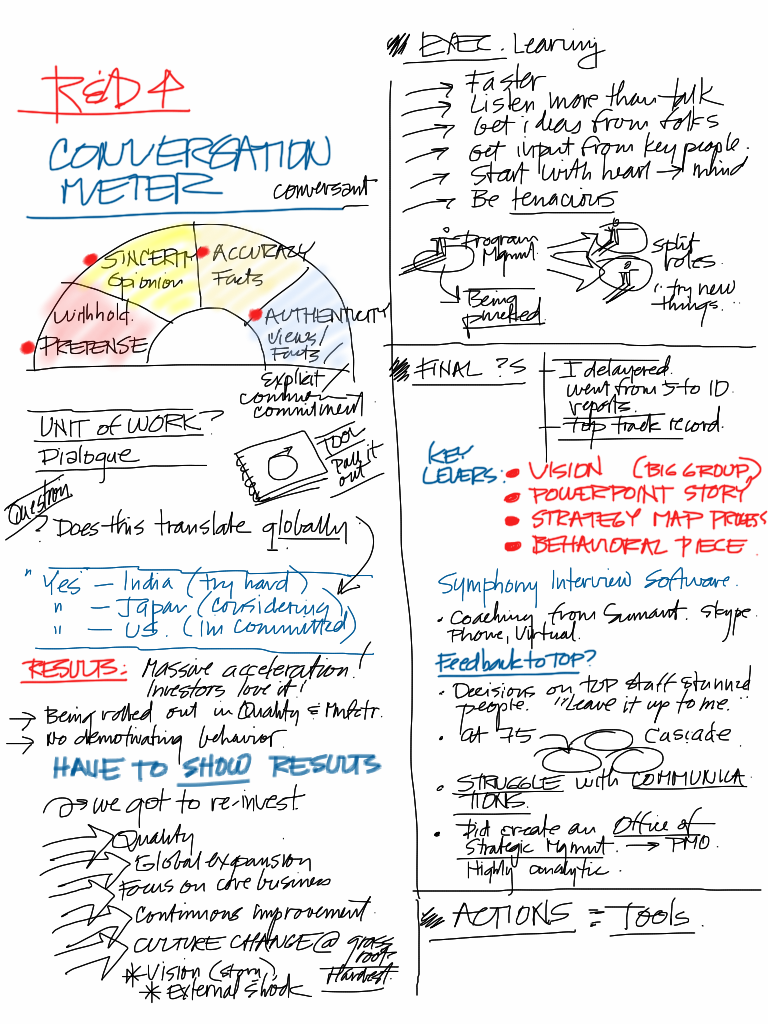 R&D 4
CONVERSATION
METER
conversant
SINCERITY
Opinion
ACCURACY
Facts
Withhold
PRETENSE
AUTHENTICITY
Views/
Facts
Explicit
commitment
UNIT of WORK?
Dialogue
TOOL
Pull it
out
Question
? Does this translate globally
"Yes" — India (try hard)
" — Japan (considering)
" — US. (I'm committed)
RESULTS: Massive acceleration!
Investors love it!
→ Being rolled out in Quality & Mnfctr.
→ No demotivating behavior.
HAVE TO SHOW RESULTS
→ we got to re-invest
Quality
Global expansion
Focus on core business
Continuous improvement
CULTURE CHANGE @ grass
roots
Hardest
* Vision (story)
* External shock
EXEC. Learning
→ Faster
→ Listen more than talk
→ Get ideas from folks
→ Get input from key people.
→ Start with heart → mind
→ Be tenacious
Program
Mgmt
Being
split
roles
"try new
things."
FINAL ?S
— I delayered.
went from 5 to 10
reports.
— Top track record.
KEY
LEVERS:
• VISION (BIG GROUP)
• POWERPOINT STORY
• STRATEGY MAP PROCESS
• BEHAVIORAL PIECE
Symphony Interview Software.
• Coaching from Sumant. Skype
Phone, Virtual.
Feedback to TOP?
• Decisions on top staff stunned
people. "Leave it up to me."
• at 75 Cascade
• STRUGGLE with COMMUNICA
TIONS.
• Did create an Office of
Strategic Mgmnt. → PMO.
Highly analytic.
ACTIONS = Tools.